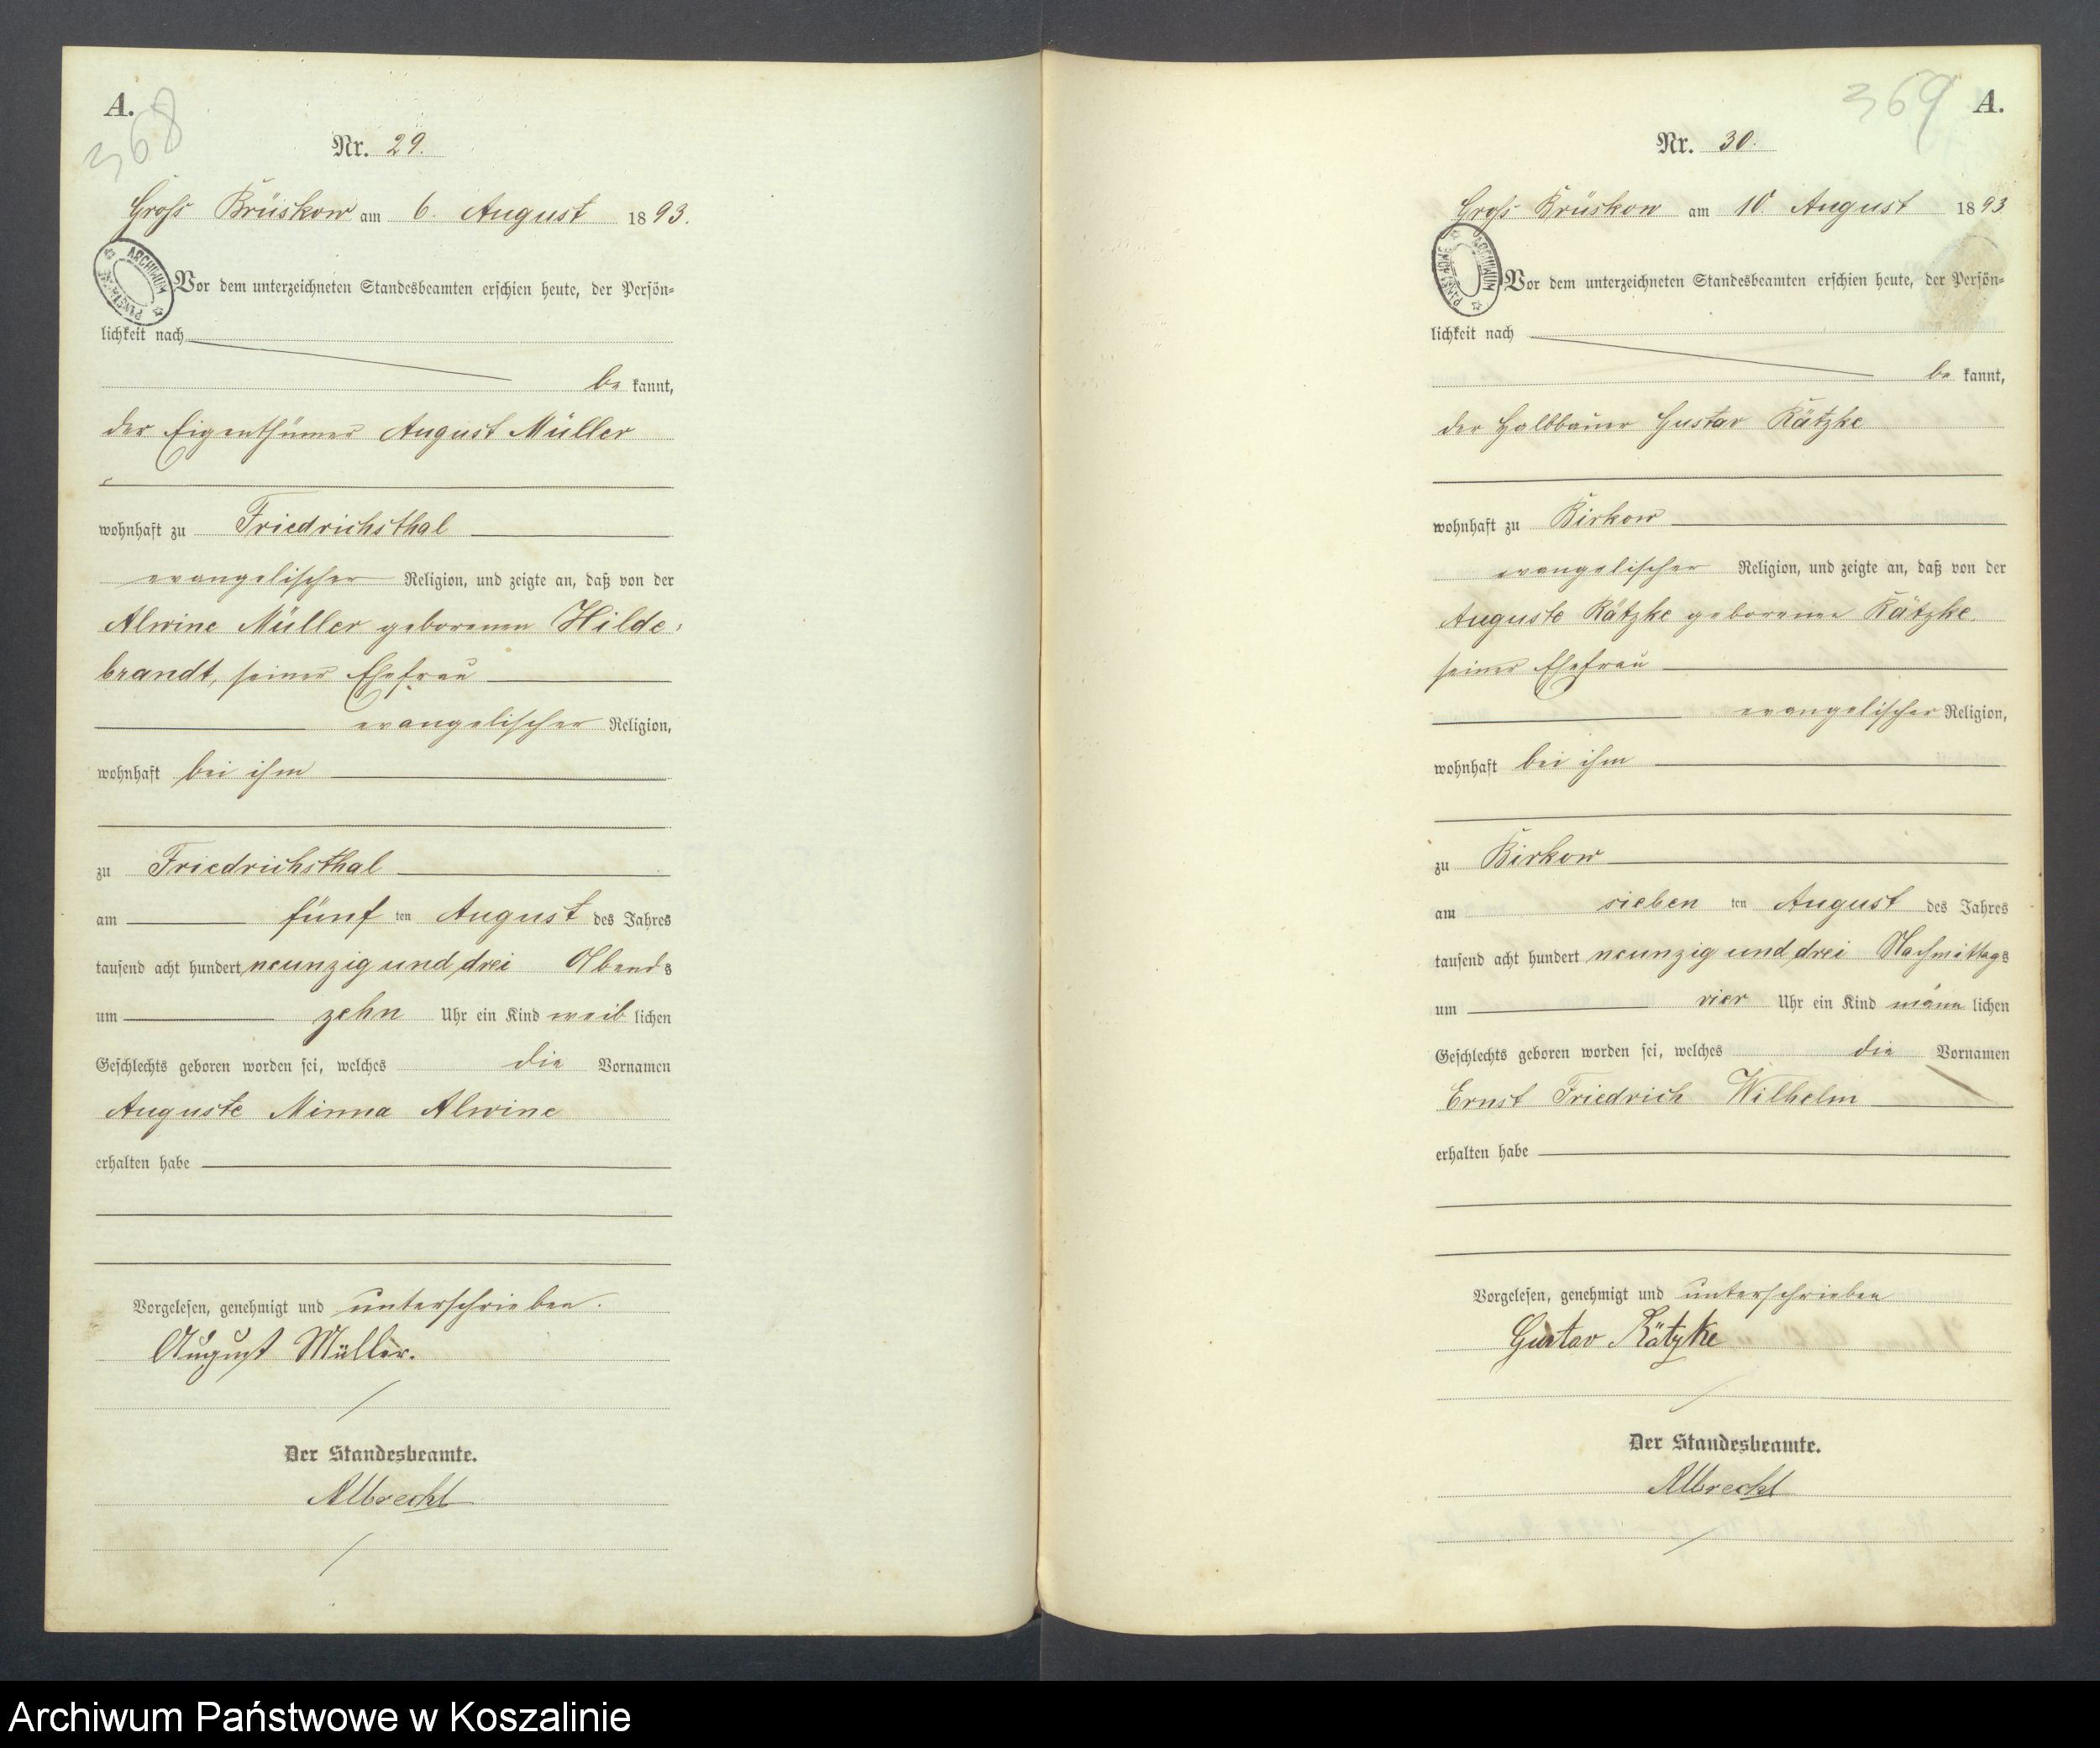 A.
368
Nr. 29.
Groß Brüskow am 6. August 1893.
ARCHIWUM PAŃSTWOWE
Vor dem unterzeichneten Standesbeamten erschien heute, der Persön=
lichkeit nach
be kannt,
der Eigenthümer August Müller
wohnhaft zu Friedrichsthal
evangelischer Religion, und zeigte an, daß von der
Alwine Müller geborenen Hilde-
brandt, seiner Ehefrau
evangelischer Religion,
wohnhaft bei ihm
zu Friedrichsthal
am fünf ten August des Jahres
tausend acht hundert neunzig und drei Abends
um zehn Uhr ein Kind weib lichen
Geschlechts geboren worden sei, welches die Vornamen
Auguste Minna Alwine
erhalten habe
Vorgelesen, genehmigt und unterschrieben.
August Müller.
Der Standesbeamte.
Albrecht
369
A.
Nr. 30.
Groß Brüskow am 10. August 1893
ARCHIWUM PAŃSTWOWE
Vor dem unterzeichneten Standesbeamten erschien heute, der Persön=
lichkeit nach
be kannt,
der Halbbauer Gustav Rätzke
wohnhaft zu Birkow
evangelischer Religion, und zeigte an, daß von der
Auguste Rätzke geborenen Rätzke
seiner Ehefrau
evangelischer Religion,
wohnhaft bei ihm
zu Birkow
am sieben ten August des Jahres
tausend acht hundert neunzig und drei Nachmittags
um vier Uhr ein Kind männ lichen
Geschlechts geboren worden sei, welches die Vornamen
Ernst Friedrich Wilhelm
erhalten habe
Vorgelesen, genehmigt und unterschrieben
Gustav Rätzke
Der Standesbeamte.
Albrecht
Archiwum Państwowe w Koszalinie